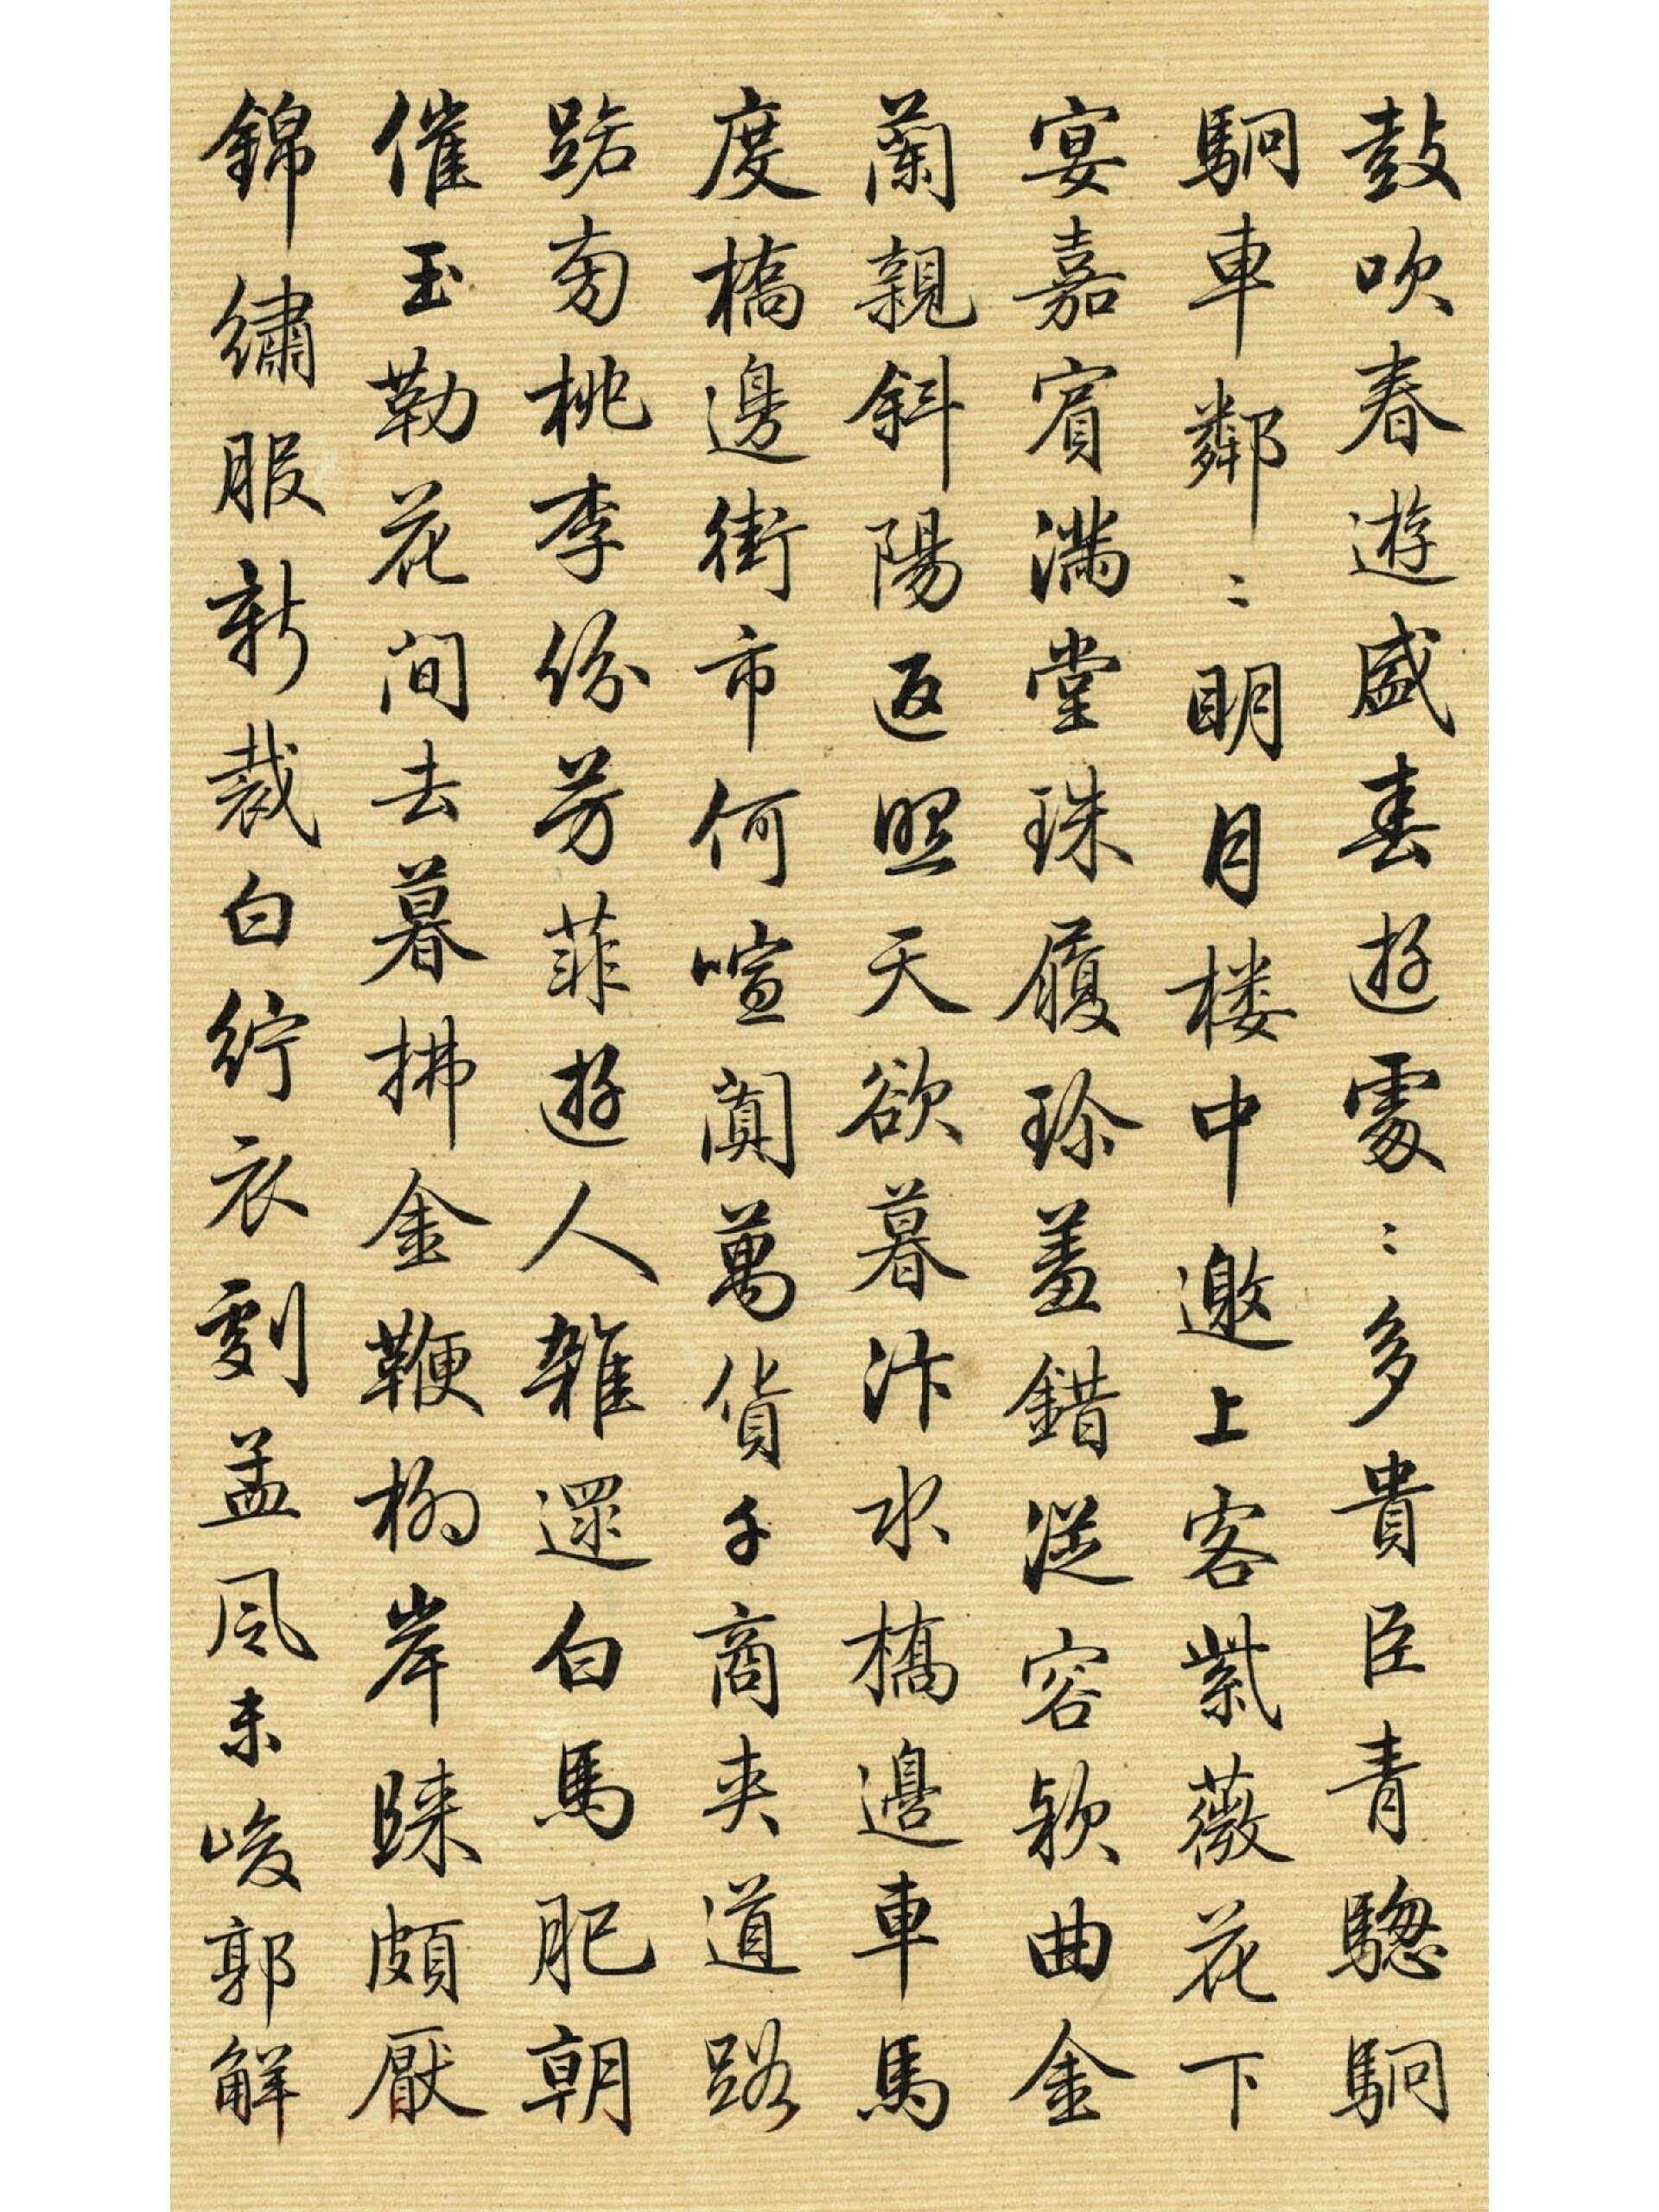 鼓吹春遊盛春遊處〻多貴臣青驄駉
駉車鄰〻明月楼中邀上客紫薇花下
宴嘉賓滿堂珠履珍羞錯從容款曲金
蘭親斜陽返照天欲暮汴水橋邊車馬
度橋邊街市何喧闐萬貨千商夾道路
路旁桃李份芳菲遊人雜遝白馬肥朝
催玉勒花间去暮拂金鞭柳岸歸頗厭
錦繡服新裁白紵衣劇孟风未峻郭解